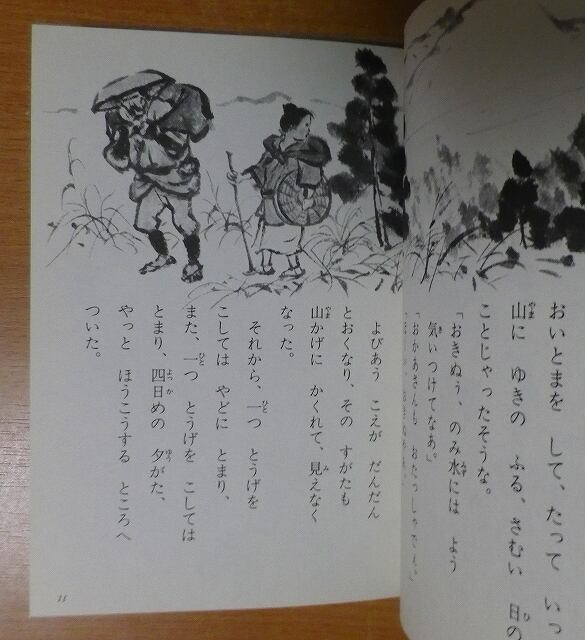 おいとまを して、たって いっ
山に ゆきの ふる、さむい 日の
ことじゃったそうな。
「おきぬぅ、のみ水には よう
気いつけてなあ。」
「おかあさんも おたっしゃでよぅ。」
よびあう こえが だんだん
とおくなり、その すがたも
山かげに かくれて、見えなく
なった。
それから、一つ とうげを
こしては やどに とまり、
また、一つ とうげを こしては
とまり、四日めの 夕がた、
やっと ほうこうする ところへ
ついた。
11